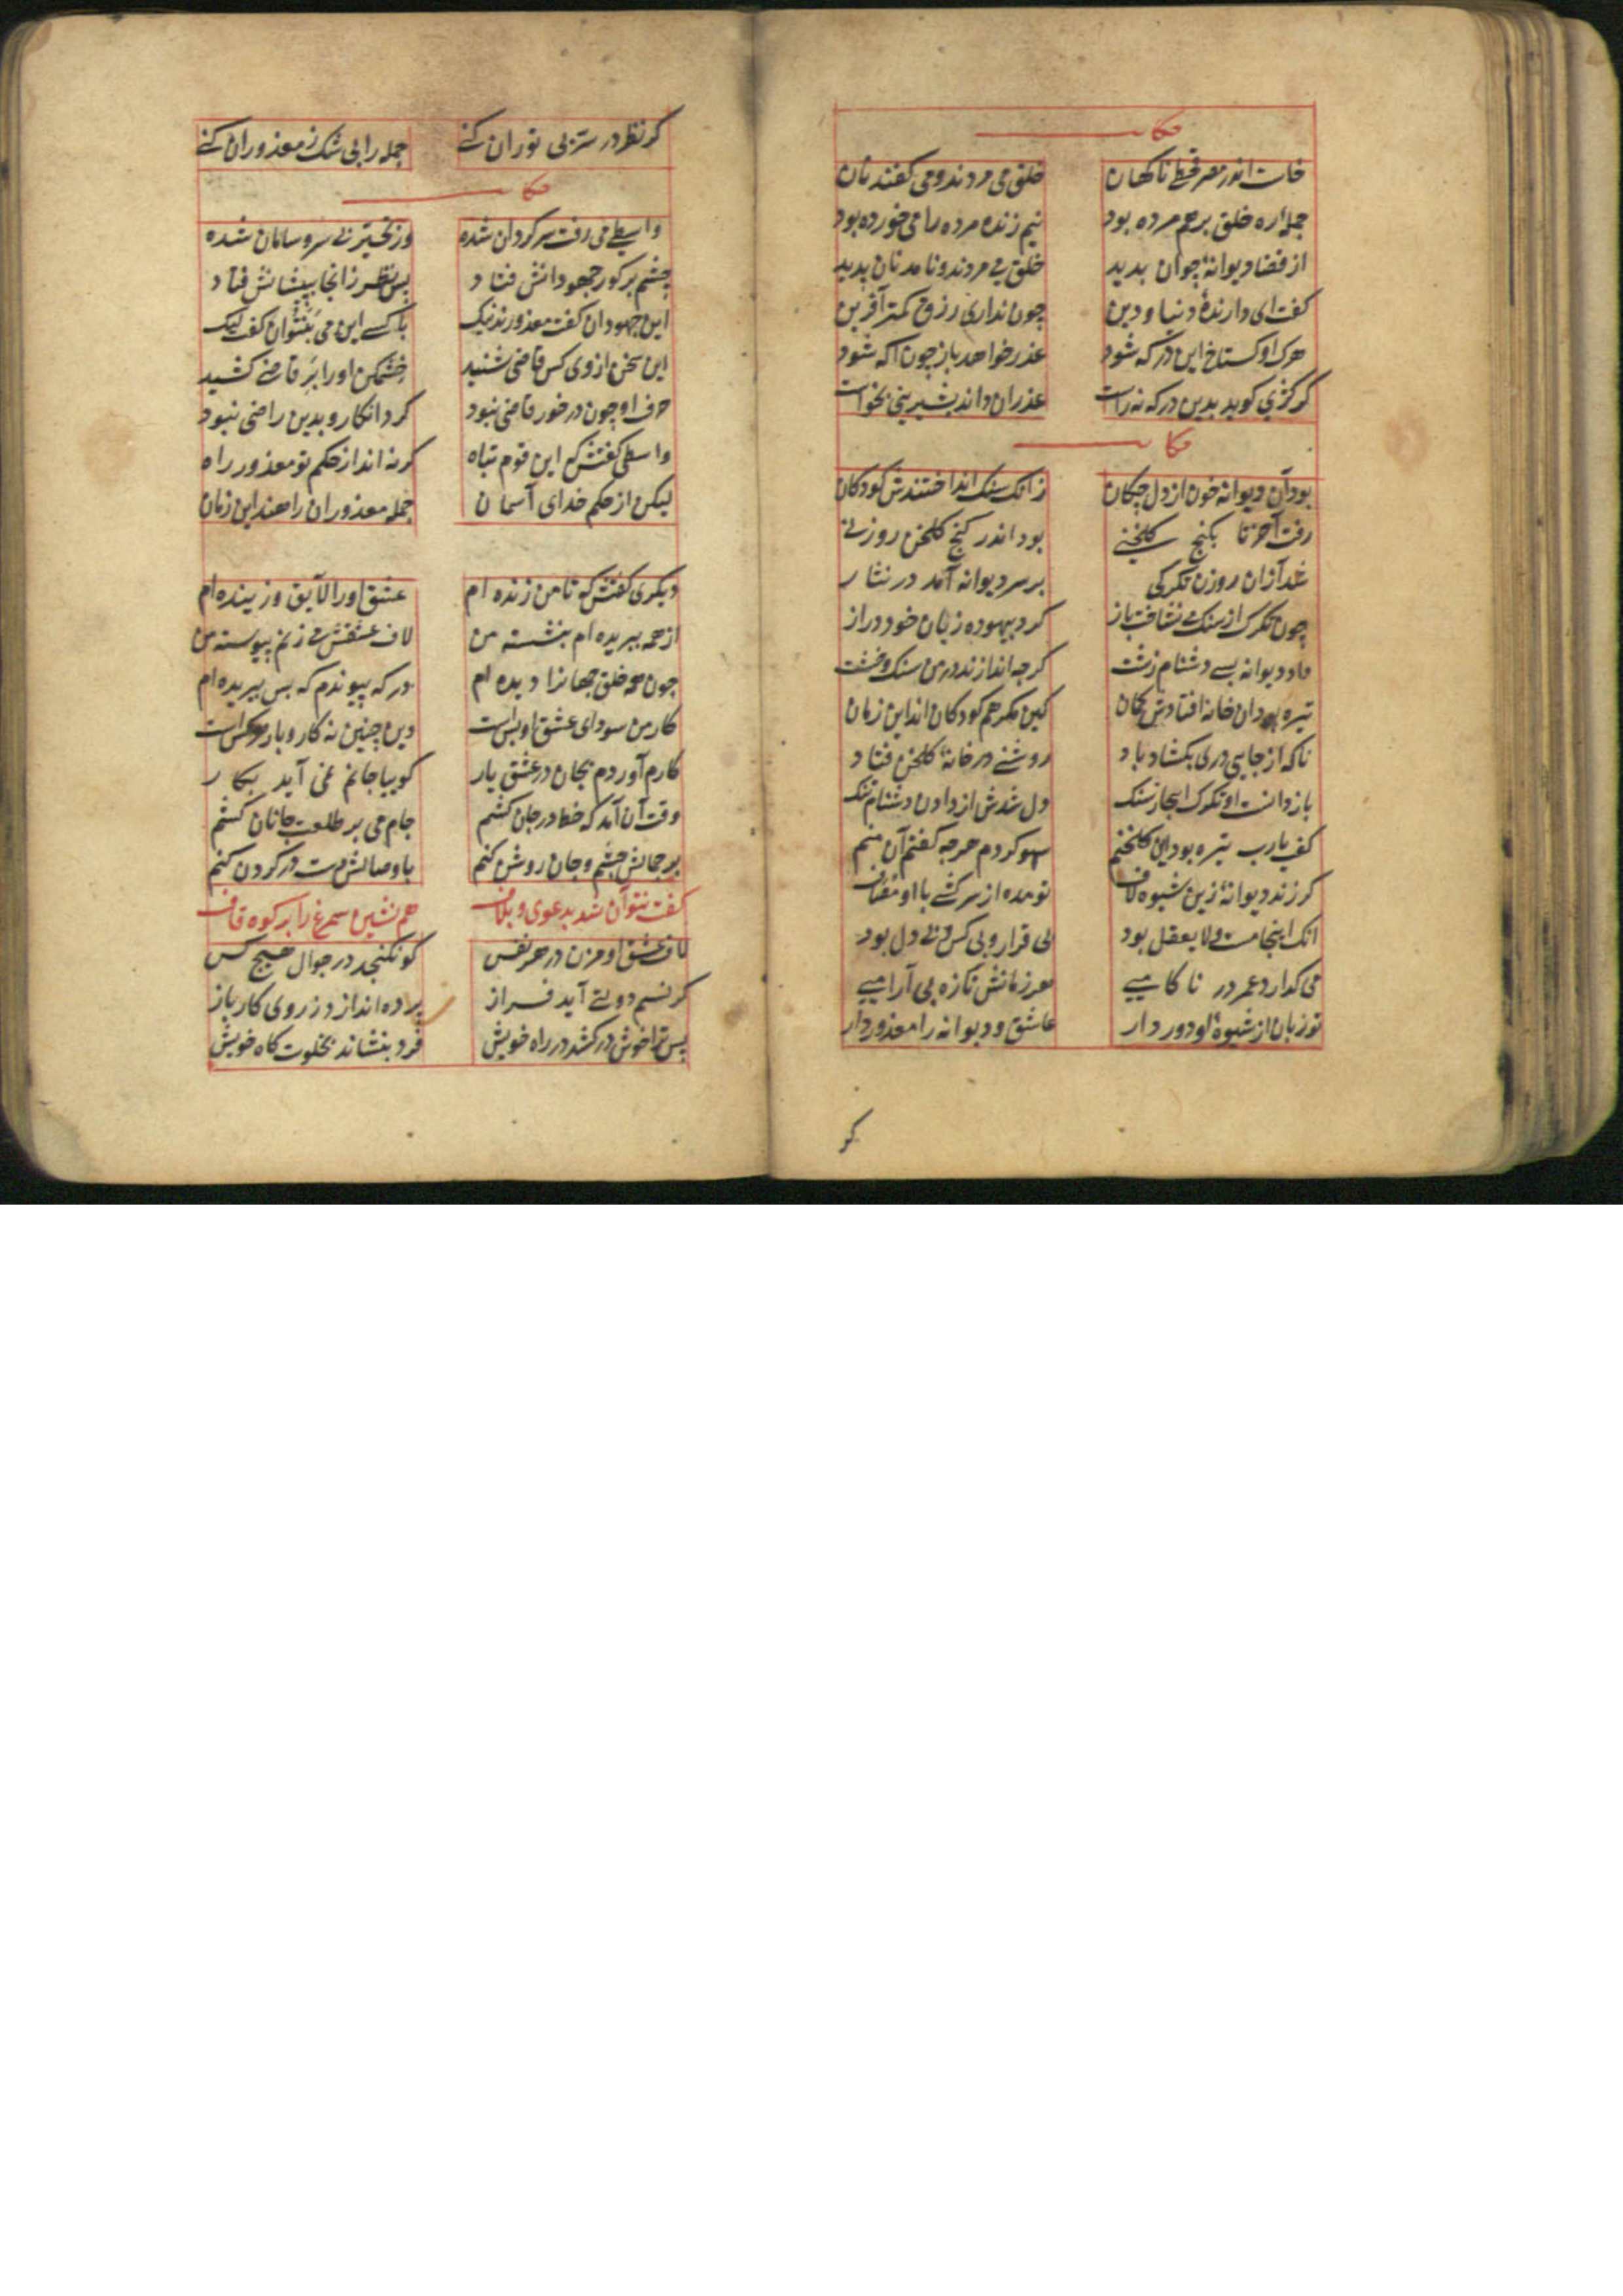 حکایت
خاست اندر مصر قحطی ناکهان خلق می مردند و می کفتند نان
جمله ره خلق بر هم مرده بود نیم زنده مرده را می خورده بود
از قضا دیوانهٔ چون آن بدید خلق می مردند و نامد نان پدید
کفت ای دارندهٔ دنیا و دین چون نداری رزق کمتر آفرین
هرک او کستاخ این درکه شود عذر خواهد باز چون آکه شود
کر کژی کوید بدین درکه نه راست عذر آن داند بشیرینی بخواست
حکایت
بود آن دیوانه خون از دل چکان زانک سنک انداختندش کودکان
رفت آخر تا بکنج کلخنی بود اندر کنج کلخن روزنی
شد از آن روزن تکرکی بر سر دیوانه آمد در نثار
چون تکرک از سنک می نشناخت باز کرد بیهوده زبان خود دراز
داد دیوانه بسی دشنام زشت کز چه اندازند بر من سنک و خشت
تیره بود آن خانه افتادش کمان کین مکر هم کودکان اند این زمان
تا که از جایی دری بکشاد باد روشنی در خانهٔ کلخن فتاد
باز دانست او تکرک اینجا ز سنک دل شدش از دادن دشنام تنک
کفت یارب تیره بود این کلخنم سهو کردم هرچه کفتم آن منم
کر زند دیوانهٔ زین شیوه لاف تو مده از سرکشی با او مصاف
آنک اینجا مست و لا یعقل بود بی قرار و بی کس و بی دل بود
می کدارد عمر در ناکامیی هر زمانش تازه بی آرامیی
تو زبان از شیوهٔ او دور دار عاشق و دیوانه را معذور دار
کر
کر نظر در سر بی نوران کنی جمله را بی شک ز معذوران کنی
حکایت
واسطی می رفت سرکردان شده وز تحیر بی سر و سامان شده
چشم بر کور جهودانش فتاد پس نظر زانجا به پیشانش فتاد
این جهودان کفت معذورند نیک با کسی این می بنتوان کفت لیک
این سخن از وی کس قاضی شنید خشمکین او را بر قاضی کشید
حرف او چون در خور قاضی نبود کرد انکار و بدین راضی نبود
واسطی کفتش که این قوم تباه کر نه اند از حکم تو معذور راه
لیکن از حکم خدای آسمان جمله معذوران راهند این زمان
دیکری کفتش که تا من زنده ام عشق او را لایق و زیبنده ام
از همه ببریده ام بنشسته من لاف عشقش می زنم پیوسته من
چون همه خلق جهانرا دیده ام در که پیوندم که بس ببریده ام
کار من سودای عشق او بس است وین چنین نه کار و بار هرکس است
کارم آوردم بجان در عشق یار کوییا جانم نمی آید بکار
وقت آن آمد که خط در جان کشم جام می بر طلعت جانان کشم
بر جمالش چشم و جان روشن کنم با وصالش دست در کردن کنم
کفت نتوان شد بدعوی و بلاف هم نشین سیمرغ را بر کوه قاف
لاف عشق او مزن در هر نفس کو نکنجد در جوال هیچ کس
کر نسیم دولتی آید فراز پرده اندازد ز روی کار باز
پس ترا خوش در کشد در راه خویش فرد بنشاند بخلوت کاه خویش